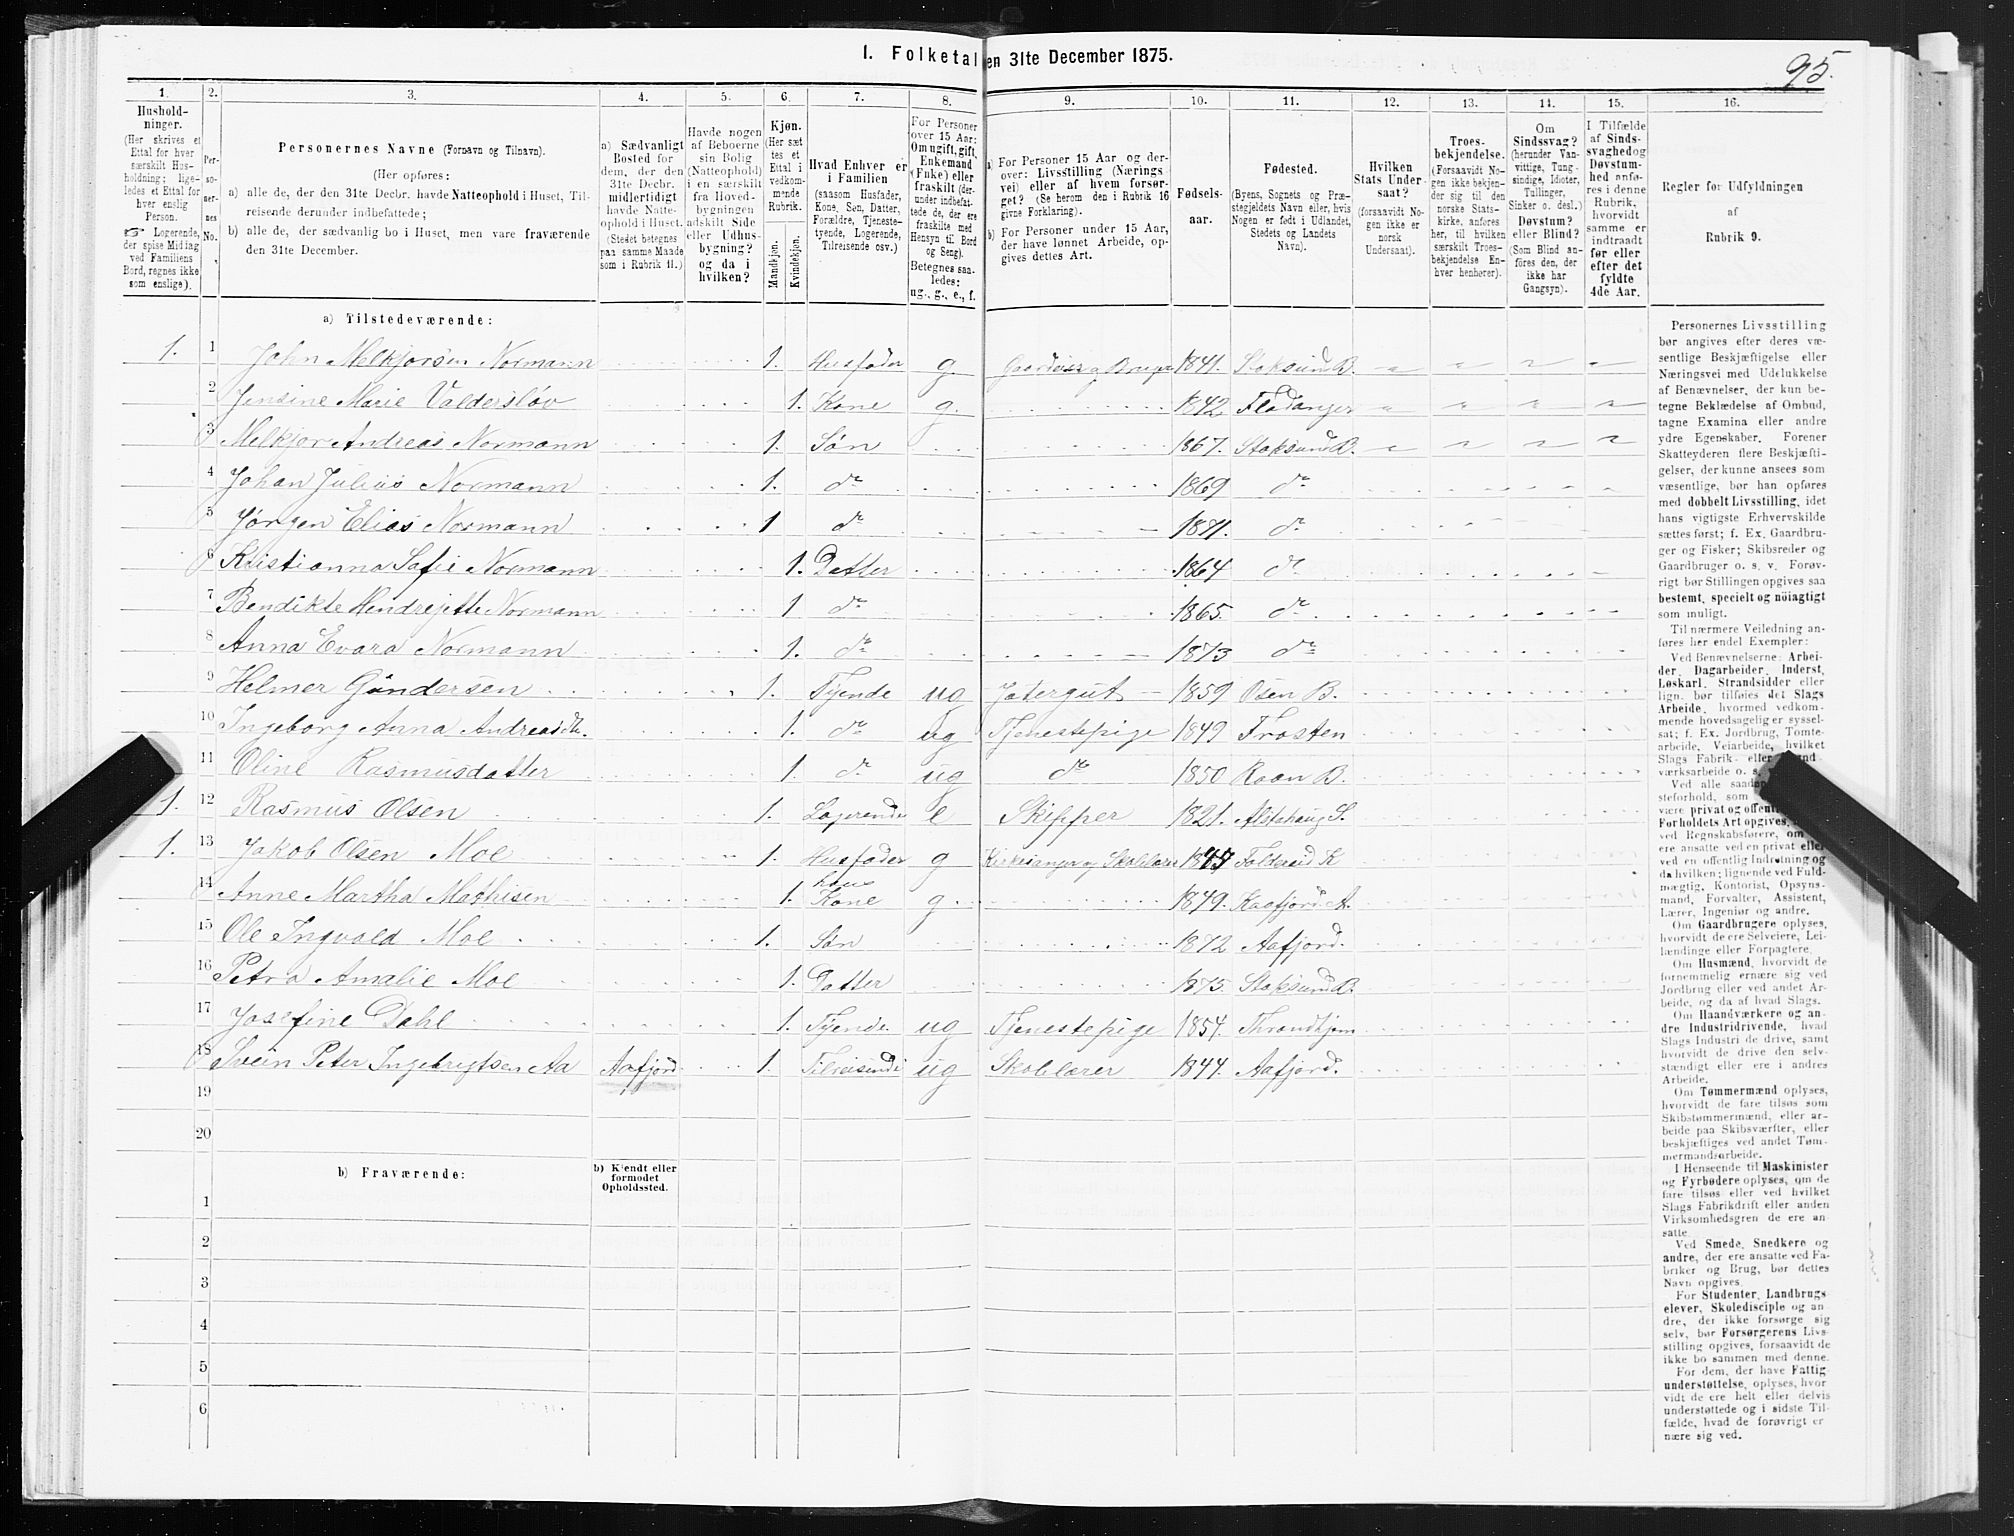 I. Folketal en 31te December 1875.
95.
1. 2. 3. 4. 5. 6. 7. 8. 9. 10. 11. 12. 13. 14. 15. 16.
Hushold-
ninger.
(Her skrives et
Ettal for hver
særskilt Hus-
holdning; lige-
ledes et Ettal for
hver enslig
Person.
☞ Logerende,
der spise Middag
ved Familiens
Bord, regnes ikke
som enslige).
Per-
so-
ner-
nes
No.
Personernes Navne (Fornavn og Tilnavn).
(Her opføres:
a) alle de, der den 31te Decbr. havde Natteophold i Huset, Til-
reisende derunder indbefattede;
b) alle de, der sædvanlig bo i Huset, men vare fraværende
den 31te December.
a) Sædvanligt
Bosted for
dem, der den
31te Decbr.
midlertidigt
havde Natte-
ophold i Huset.
(Stedet betegnes
paa samme Maade
som i Rubrik 11.)
Havde nogen
af Beboerne
sin Bolig
(Natteophold)
i en særskilt
fra Hoved-
bygningen
adskilt Side
eller Udhus-
bygning?
og da i
hvilken?
Kjøn.
(Her sæt
tes et
Ettal i
vedkom-
mende
Rubrik.
Mandkjøn.
Kvindekjøn.
Hvad Enhver er
i Familien
(saasom Husfader,
Kone, Søn, Datter,
Forældre, Tjeneste-
tyende, Logerende,
Tilreisende osv.)
For Personer
over 15 Aar:
Om ugift, gift,
Enkemand
(Enke) eller
fraskilt (der-
under indbefat-
tede de, der ere
fraskilte med
Hensyn til Bord
og Seng).
Betegnes saa-
ledes:
ug., g., e., f.
a) For Personer 15 Aar og der-
over: Livsstilling (Nærings
vei) eller af hvem forsør-
get? (Se herom den i Rubrik 16
givne Forklaring).
b) For Personer under 15 Aar,
der have lønnet Arbeide, op-
gives dettes Art.
Fødsels-
aar.
Fødested.
(Byens, Sognets og Præ-
stegjeldets Navn eller, hvis
Nogen er født i Udlandet,
Stedets og Landets
Navn).
Hvilken
Stats Under
saat?
(forsaavidt No-
gen ikke er
norsk
Undersaat).
Troes-
bekjendelse.
(Forsaavidt No-
gen ikke bekjen-
der sig til den
norske Stats-
kirke, anføres
her, til hvilken
særskilt Troes-
bekjendelse En-
hver henhører).
Om
Sindssvag?
(herunder Van-
vittige, Tung-
sindige, Idioter,
Tullinger,
Sinker o. desl.)
Døvstum?
eller Blind?
(Som Blind an-
føres den, der
ikke har
Gangsyn).
I Tilfælde
af Sinds-
svaghed og
Døvstum-
hed anfø-
res i denne
Rubrik,
hvorvidt
samme er
indtraadt
før eller
efter det
fyldte
4de Aar.
Regler før Udfyldningen
af
Rubrik 9.
a) Tilstedeværende:
1. 1 John Melkjorsen Normann 1. Husfader g. 1841. Stoksund B.
2 Jensine Marie Valdersløv 1. Kone g. 1842 Fladanger
3 Melkjor Andreas Normann 1. Søn 1867. Stoksund B.
4 Johan Julius Normann 1. do 1869 do
5 Jørgen Elias Normann 1 do 1871. do
6 Kristianna Safie Normann 1. Datter 1864 do
7 Bendikte Hendrejette Normann 1 do 1865. do
8 Anna Evara Normann 1. do 1873 do
9 Helmer Gündersen 1. Tyende ug Jætergut 1859 Osen B.
10 Ingeborg Anna Andreasdtr. 1. do ug Tjenestepige 1849 Frosten
11 Oline Rasmusdatter 1. do ug do 1850 Roan B.
1. 12 Rasmus Olsen 1. Logerende e Skipper 1821. Alstahaug S.
1. 13 Jakob Olsen Moe 1. Husfader g Kirkesanger og Skolelærer Foldereid K
14 Anne Martha Mathisen 1. hans Kone g. 1849. Kaafjord A.
15 Ole Ingvald Moe 1. Søn 1872 Aafjord.
16 Petra Amalie Moe 1. Datter 1875. Stoksund B.
17 Josefine Dahl 1. Tyende ug Tjenestepige 1854. Throndhjem
18 Svein Peter Ingebrigtsen Aa Aafjord 1. Tilreisende ug Skolelærer 1844. Aafjord.
19
20
b) Fraværende:
b) Kjendt eller
formodet
Opholdssted.
1
2
3
4
5
6
Personernes Livsstilling
bør angives efter deres væ-
sentlige Beskjæftigelse eller
Næringsvei med Udelukkelse
af Benævnelser, der kun be-
tegne Beklædelse af Ombud,
tagne Examina eller andre
ydre Egenskaber. Forener
Skatteyderen flere Beskjæfti-
gelser, der kunne ansees som
væsentlige, bør han opføres
med dobbelt Livsstilling, idet
hans vigtigste Erhvervskilde
sættes først; f. Ex. Gaardbru-
ger og Fisker; Skibsreder og
Gaardbruger o. s. v. Forøv-
rigt bør Stillingen opgives saa
bestemt, specielt og nöiagtigt
som muligt.
Til nærmere Veiledning an-
føres her endel Exempler:
Ved Benævnelserne: Arbei-
der, Dagarbeider, Inderst,
Løskarl, Strandsidder eller
lign. bør tilføies det Slags
Arbeide, hvormed vedkom-
mende hovedsagelig er syssel-
sat; f. Ex. Jordbrug, Tomte-
arbeide, Veiarbeide, hvilket
Slags Fabrik- eller
værksarbeide o. s.
Ved alle
steforhold, som
være privat og
Forholdets Art opgives,
ved Regnskabsførere, om
ere ansatte ved en privat eller
ved en offentlig Indretning og
da hvilken; lignende ved Fuld-
mægtig, Kontorist, Opsyns-
mand, Forvalter, Assistent,
Lærer, Ingeniør og andre.
Om Gaardbrugere oplyses,
hvorvidt de ere Selveiere, Lei-
lændinge eller Forpagtere.
Om Husmænd, hvorvidt de
fornemmelig ernære sig ved
Jordbrug eller ved andet Ar-
beide, og da af hvad Slags.
Om Haandværkere og an-
dre Industridrivende, hvad
Slags Industri de drive, samt
hvorvidt de drive den selv-
stændigt eller ere i andres
Arbeide.
Om Tømmermænd oplyses,
hvorvidt de fare tilsøs som
Skibstømmermænd, eller ar-
beide paa Skibsværfter, eller
beskjæftiges ved andet Tøm-
mermandsarbeide.
I Henseende til Maskinister
og Fyrbødere oplyses, om de
fare tilsøs eller ved hvilket
Slags Fabrikdrift eller anden
Virksomhedsgren de ere an-
satte.
Ved Smede, Snedkere og
andre, der ere ansatte ved Fa-
briker og Brug, bør dettes
Navn opgives.
For Studenter, Landbrugs
elever, Skoledisciple og an-
dre, der ikke forsørge sig
selv, bør Forsørgerens Livs-
stilling opgives, forsaavidt de
ikke bo sammen med denne.
For dem, der have Fattig-
understøttelse, oplyses, hvor
vidt de ere helt eller delvis
understøttede og i sidste Til-
fælde, hvad de forøvrigt er
nære sig ved.